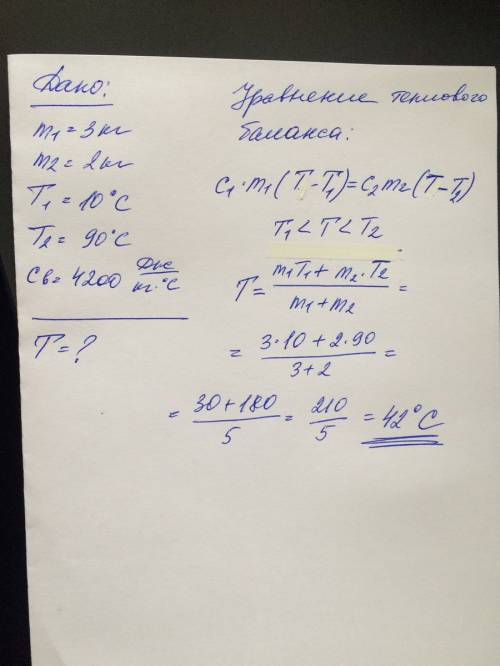 Дано:
m₁ = 3 кг
m₂ = 2 кг
T₁ = 10°C
T₂ = 90°C
Cв = 4200 Дж/кг·°C
T = ?
Уравнение теплового
баланса:
C₁·m₁(T-T₁)=C₂m₂(T-T₂)
T₁ < T < T₂
T = (m₁T₁ + m₂·T₂)/(m₁+m₂) =
= (3·10 + 2·90)/(3+2) =
= (30+180)/5 = 210/5 = 42°C